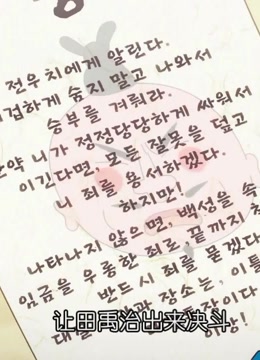 전우치에게 알린다.
겁하게 숨지 말고 나와서
승부를 겨뤄라.
만약 니가 정정당당하게 싸워서
이긴다면, 모든 잘못을 덮고
니 죄를 용서하겠다.
하지만!
나타나지 않으면, 백성을 속
임금을 우롱한 죄로 끝까지
반드시 죄를 묻겠다
장소는, 이틀
让田禹治出来决斗